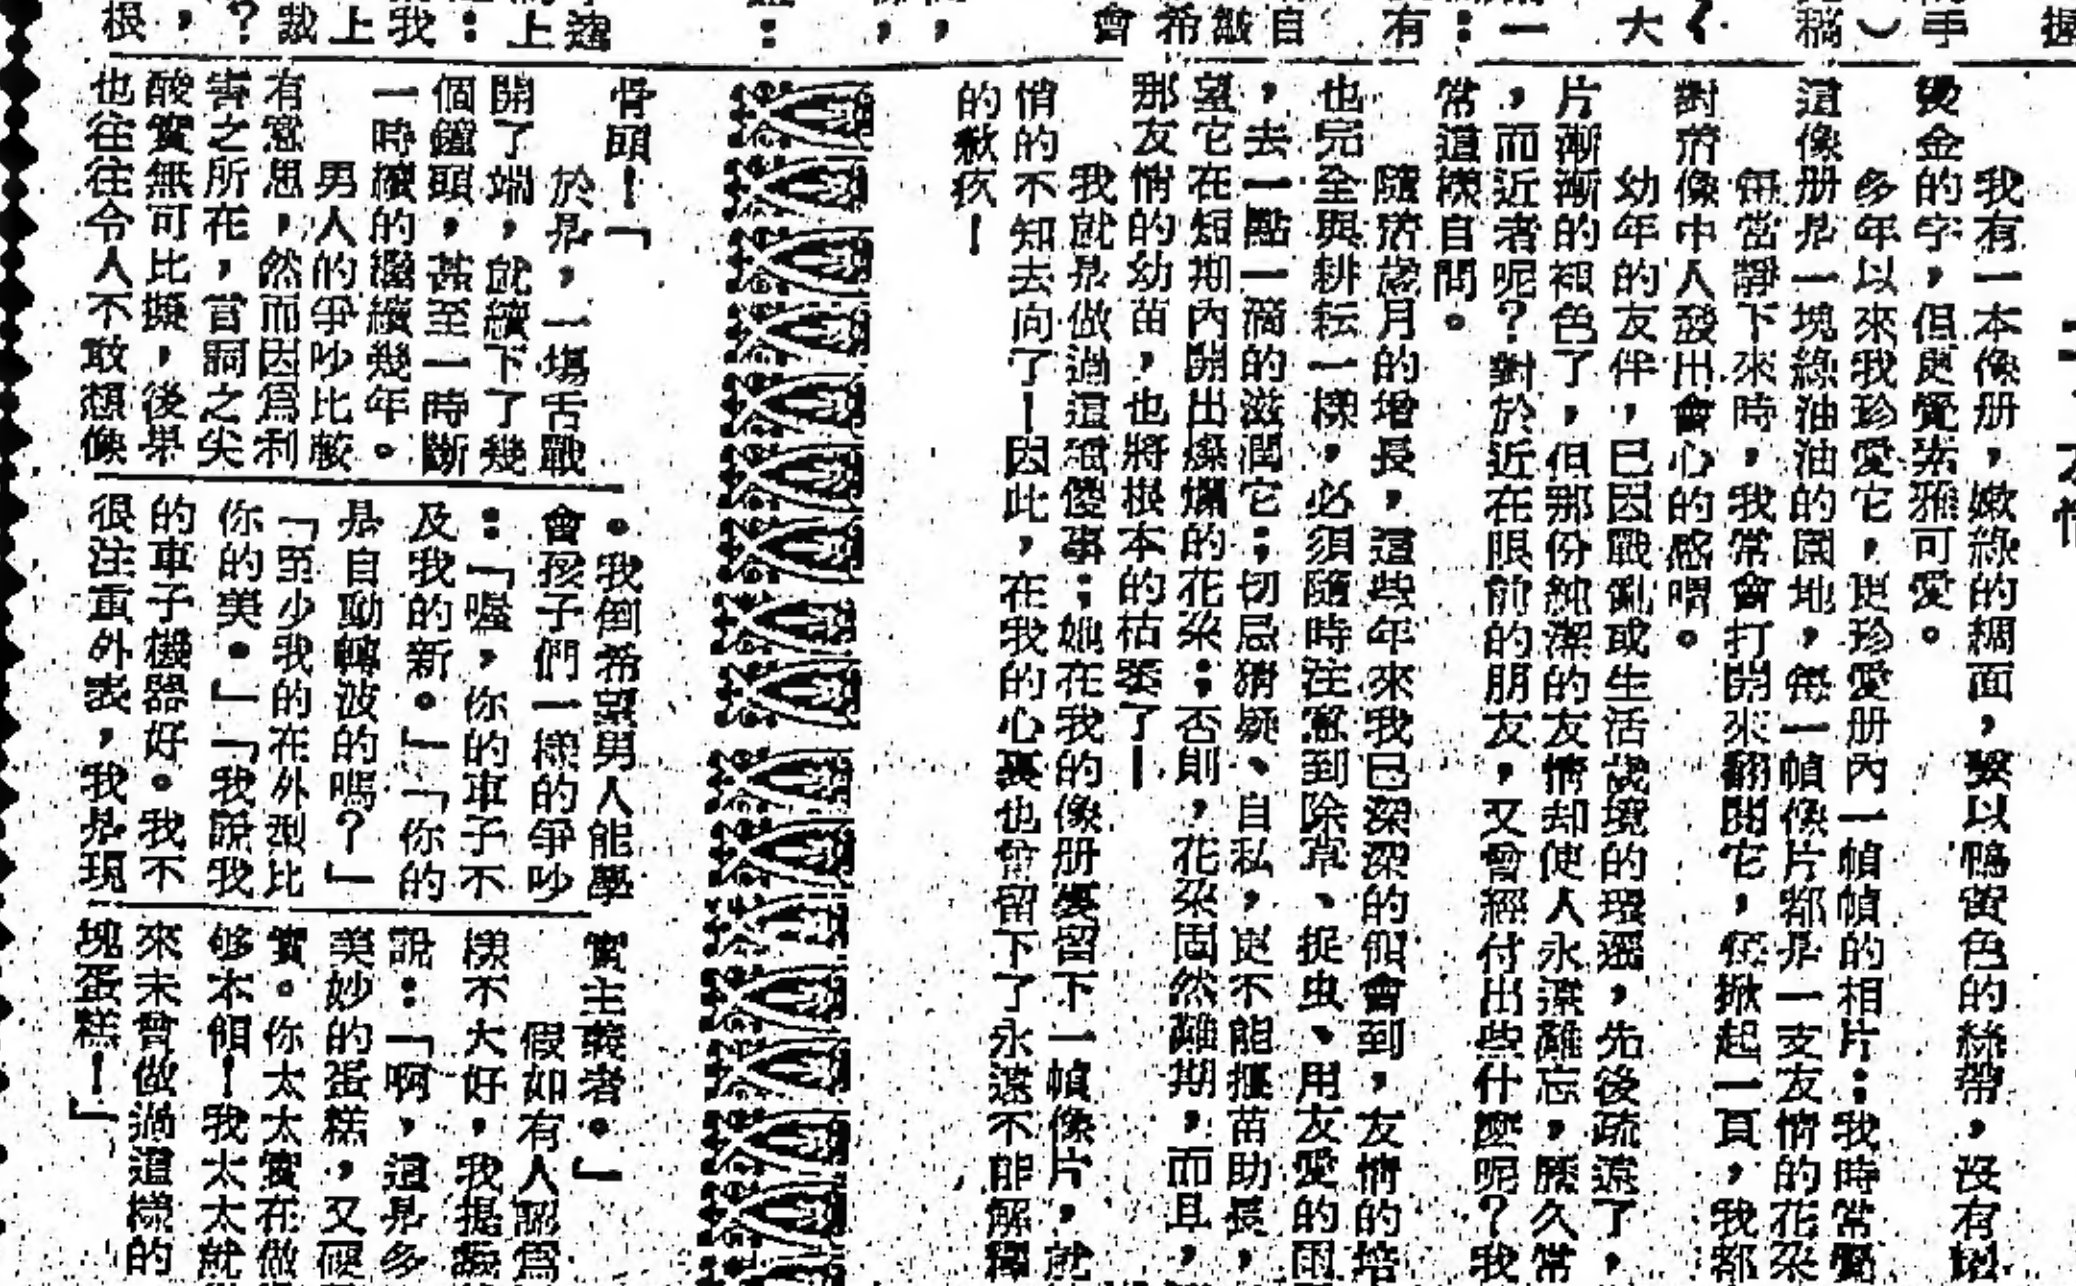 我有一本像册，嫩綠的綢面，繫以鴨黃色的絲帶，沒有
燙金的字，但更覺素雅可愛。
多年以來我珍愛它，更珍愛册內一幀幀的相片：我時常覺
這像册是一塊綠油油的園地，每一幀像片都是一支友情的花朶
每當靜下來時，我常會打開來翻閱它，每掀起一頁，我都
對着像中人發出會心的感喟。
幼年的友伴，已因戰亂或生活環境的環遷，先後疏遠了，
片漸漸的褪色了，但那份純潔的友情却使人永遠難忘，歷久常
，而近者呢？對於近在眼前的朋友，又曾經付出些什麼呢？我
常這樣自問。
隨着歲月的增長，這些年來我已深深的領會到，友情的培
也完全與耕耘一樣，必須隨時注意到除草、捉虫、用友愛的雨
，去一點一滴的滋潤它；切忌猜疑、自私，更不能揠苗助長，
望它在短期內開出燦爛的花朶；否則，花朶固然難期，而且，
那友情的幼苗，也將根本的枯萎了—
我就是做過這種傻事；她在我的像册要留下一幀像片，就
悄的不知去向了！因此，在我的心裏也曾留下了永遠不能解釋
的歉疚！
骨頭！」
於是，一場舌戰
開了端，就續下了幾
個鐘頭，甚至一時斷
一時續的繼續幾年。
男人的爭吵比較
有意思，然而因爲利
害之所在，言詞之尖
酸實無可比擬，後果
也往往令人不敢想像
。我倒希望男人能學
會孩子們一樣的爭吵
：「喔，你的車子不
及我的新。」「你的
是自動轉波的嗎？」
「至少我的在外型比
你的美。」「我說我
的車子機器好。我不
很注重外表，我是現
實主義者。」
假如有人認爲
樣不大好，我提議
說：「啊，這是多
美妙的蛋糕，又硬
實。你太太實在做
够本領！我太太就
來未曾做過這樣的
塊蛋糕！」